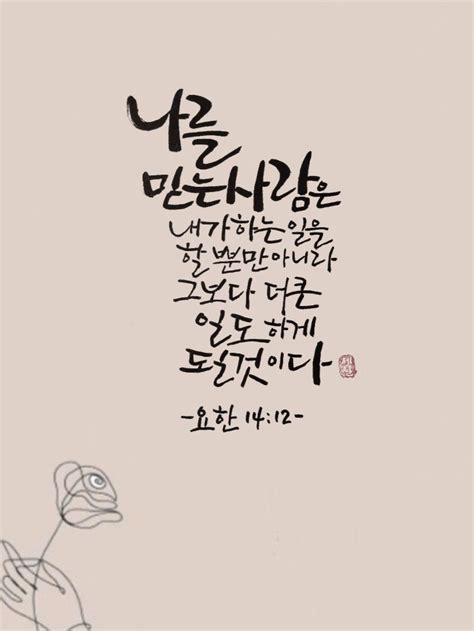 나를
믿는사람은
내가하는일을
할뿐만아니라
그보다 더큰
일도 하게
될것이다
-요한 14:12-